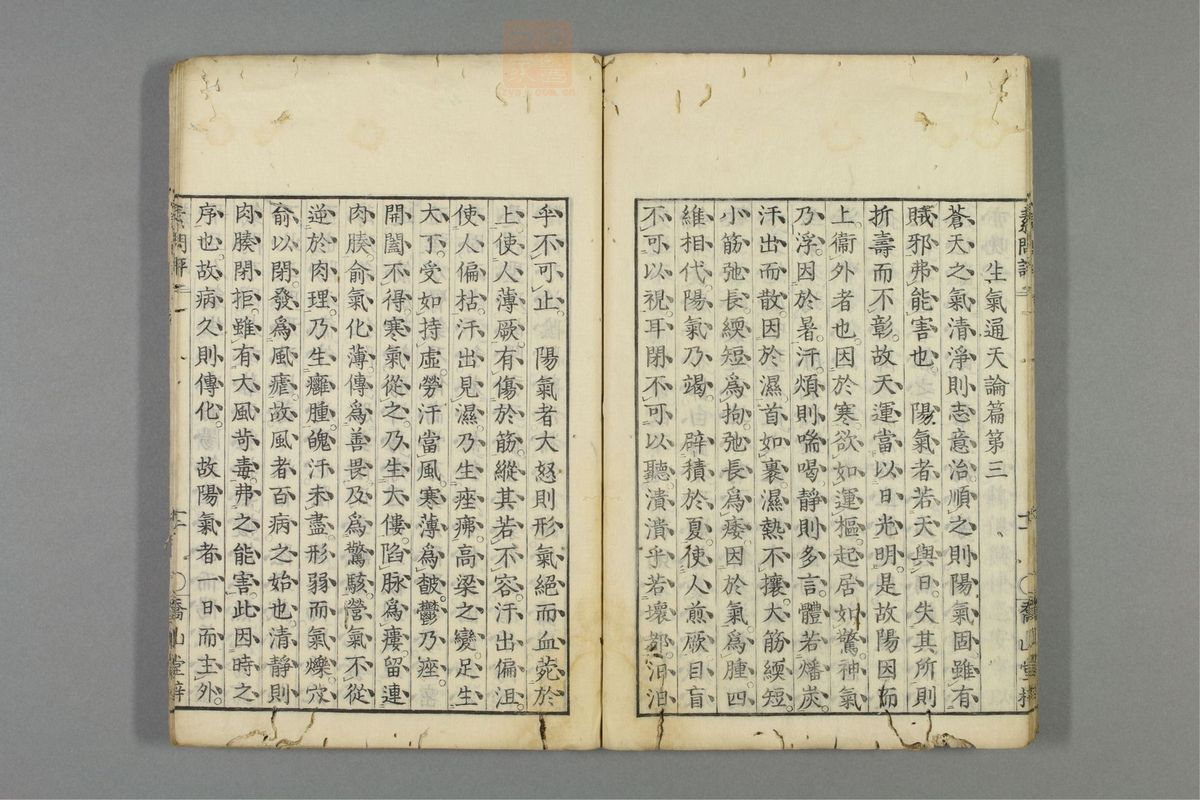 生氣通天論篇第三
蒼天之氣清淨則志意治順之則陽氣固雖有
賊邪弗能害也。陽氣者若天與日失其所則
折壽而不彰故天運當以日光明是故陽因而
上衞外者也因於寒欲如運樞起居如驚神氣
乃浮因於暑汗煩則喘喝靜則多言體若燔炭
汗出而散因於濕首如裹濕熱不攘大筋緛短
小筋弛長緛短爲拘弛長爲痿因於氣爲腫四
維相代陽氣乃竭辟積於夏使人煎厥目盲
不可以視耳閉不可以聽潰潰乎若壞都汩汩
乎不可止。陽氣者大怒則形氣絕而血菀於
上使人薄厥有傷於筋縱其若不容汗出偏沮
使人偏枯汗出見濕乃生痤疿高梁之變足生
大丁受如持虛勞汗當風寒薄爲皶鬱乃痤
開闔不得寒氣從之乃生大僂陷脉爲瘻留連
肉腠俞氣化薄傳爲善畏及爲驚駭營氣不從
逆於肉理乃生癰腫魄汗未盡形弱而氣爍穴
俞以閉發爲風瘧故風者百病之始也清靜則
肉腠閉拒雖有大風苛毒弗之能害此因時之
序也故病久則傳化。故陽氣者一日而主外